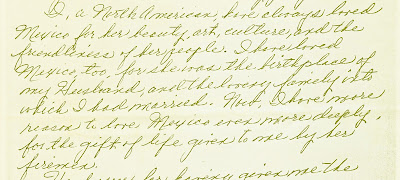 I, a North American, have always loved
Mexico for her beauty, art, culture, and the
friendliness of her people. I have loved
Mexico, too, for she was the birthplace of
my Husband, and the loving family into
which I had married. Now, I have more
reason to love Mexico even more deeply,
for the gift of life given to me by her
firemen.
having given me the